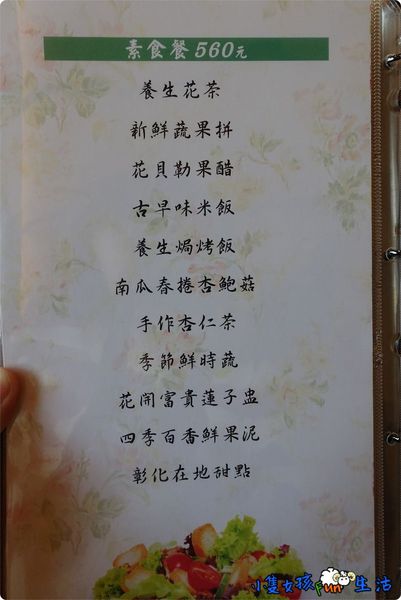 素食餐 560元
養生花茶
新鮮蔬果拼
花貝勒果醋
古早味米飯
養生焗烤飯
南瓜春捲杏鮑菇
手作杏仁茶
季節鮮時蔬
花開富貴蓮子盅
四季百香鮮果泥
彰化在地甜點
小隻女孩Fun生活